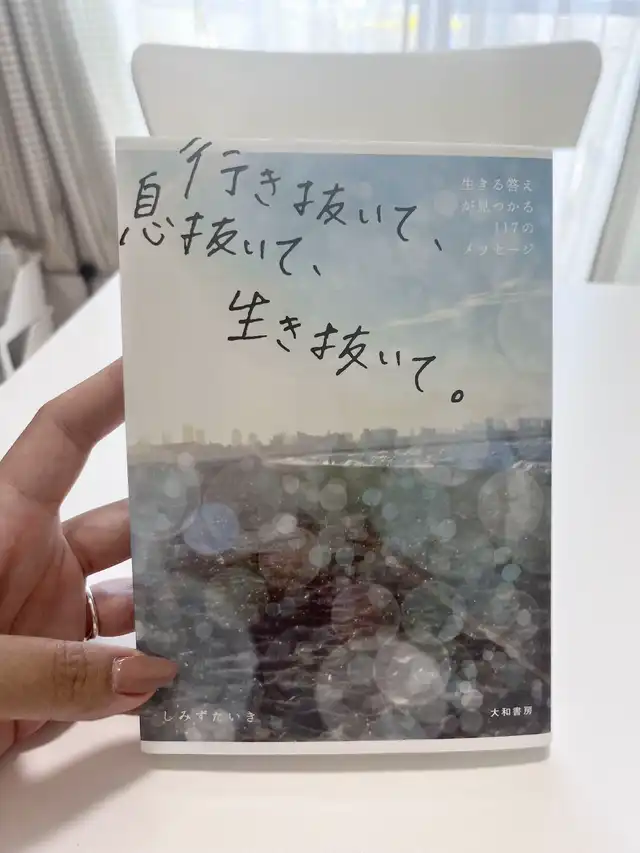 行きま抜いて、
息ま抜いて、
生きま抜いて。
生きる答え
が見つかる
117の
メッセージ
しみずたいき
大和書房